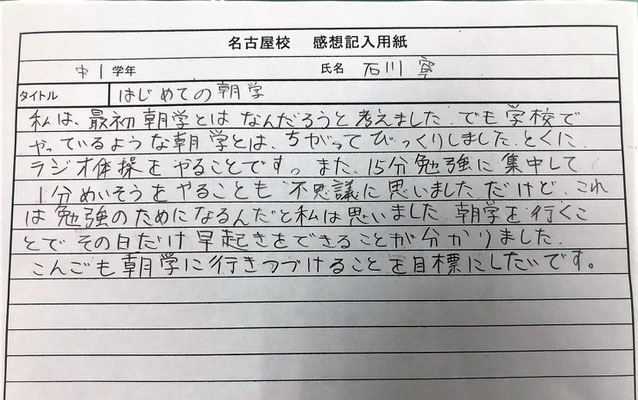 名古屋校 感想記入用紙
中1 学年 氏名 石川 寧
タイトル はじめての朝学
私は、最初朝学とはなんだろうと考えました。でも学校で
やっているような朝学とは、ちがってびっくりしました。とくに、
ラジオ体操をやることです。また、15分勉強に集中して
1分めいそうをやることも不思議に思いました。だけど、これ
は勉強のためになるんだと私は思いました。朝学を行くこ
とでその日だけ早起きをできることが分かりました。
こんごも朝学に行きつづけることを目標にしたいです。